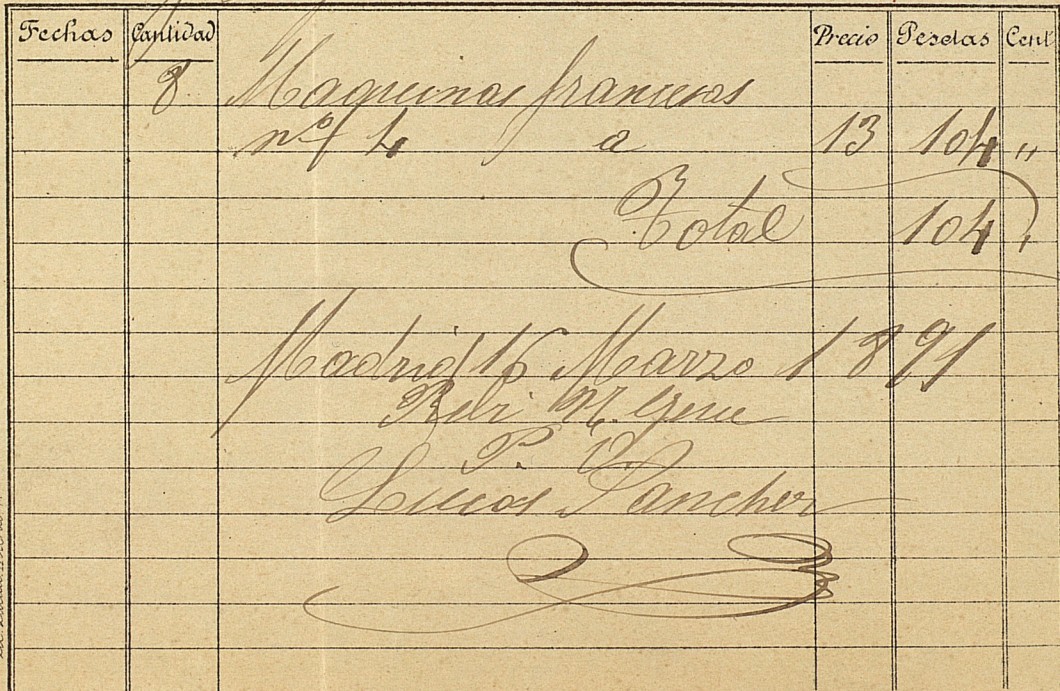 Fechas Cantidad Precio Pesetas Cent
8 Maquinas francesas
nº 4 a 13 104 "
Total 104 "
Madrid 16 Marzo 1891
Recibi
P. O.
Lucas Sanchez